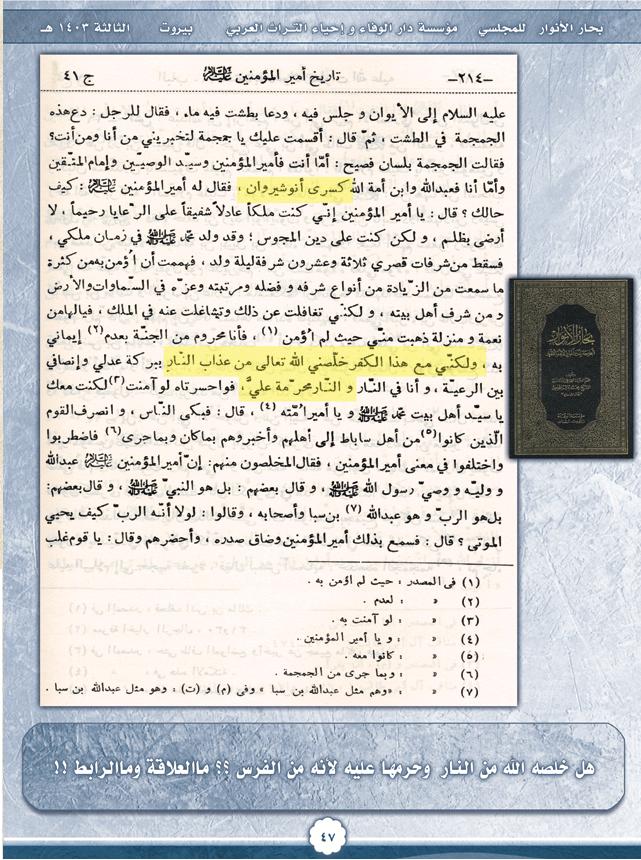 بحار الأنوار للمجلسي مؤسسة دار الوفاء و إحياء التراث العربي بيروت الثالثة ١٤٠٣ هـ
-٢١٤- تاريخ أمير المؤمنين ﷺ ج ٤١
عليه السلام إلى الأيوان و جلس فيه ، ودعا بطشت فيه ماء ، فقال للرجل : دع هذه
الجمجمة في الطشت ، ثمّ قال : أقسمت عليك يا جمجمة لتخبريني من أنا ومن أنت؟
فقالت الجمجمة بلسان فصيح : أمّا أنت فأمير المؤمنين وسيّد الوصيّين وإمام المتّقين
وأمّا أنا فعبدالله وابن أمة الله كسرى أنوشيروان ، فقال له أمير المؤمنين : كيف
حالك ؟ قال : يا أمير المؤمنين إنّي كنت ملكاً عادلاً شفيقاً على الرّعايا رحيماً ، لا
أرضى بظلم ، و لكن كنت على دين المجوس ؛ وقد ولد محمّد ﷺ في زمان ملكي ،
فسقط من شرفات قصري ثلاثة وعشرون شرفة ليلة ولد ، فهممت أن اُؤمن به من كثرة
ما سمعت من الزّيادة من أنواع شرفه و فضله ومرتبته وعزّه في السّماوات والأرض
و من شرف أهل بيته ، و لكنّي تغافلت عن ذلك وتشاغلت عنه في الملك ، فيالها من
نعمة و منزلة ذهبت منّي حيث لم اُؤمن (١) ، فأنا محروم من الجنّة بعدم(٢) إيماني
به ، ولكنّي مع هذا الكفر خلّصني الله تعالى من عذاب النّار ببركة عدلي وإنصافي
بين الرعيّة ، و أنا في النّار و النّار محرّمة عليّ ، فواحسرتاه لو آمنت(٣) لكنت معك
يا سيّد أهل بيت محمّد ﷺ و يا أمير اُمّته (٤) ، قال : فبكى النّاس ، و انصرف القوم
الّذين كانوا(٥) من أهل ساباط إلى أهلهم وأخبروهم بماكان وبماجرى(٦) فاضطربوا
واختلفوا في معنى أمير المؤمنين ، فقال المخلصون منهم: إنّ أمير المؤمنين عبدالله
و وليّه و وصيّ رسول الله ﷺ ، و قال بعضهم : بل هو النبيّ ﷺ ، و قال بعضهم:
بل هو الربّ و هو عبدالله (٧) بن سبا وأصحابه ، وقالوا : لولا أنّه الربّ كيف يحيي
الموتى ؟ قال : فسمع بذلك أمير المؤمنين وضاق صدره ، وأحضرهم وقال : يا قوم غلب
(١) فى المصدر : حيث لم اؤمن به .
(٢) « « : لعدم .
(٣) « « : لو آمنت به .
(٤) « « : و يا أمير المؤمنين .
(٥) « « : كانوا معه .
(٦) « « : وبما جرى من الجمجمة .
(٧) « « : «وهم مثل عبدالله بن سبا » وفى (م) و (ت) : وهو مثل عبدالله بن سبا .
بحار الأنوار
هل خلصه الله من النار وحرمها عليه لانه من الفرس ؟؟ ماالعلاقة وماالرابط !!
٤٧